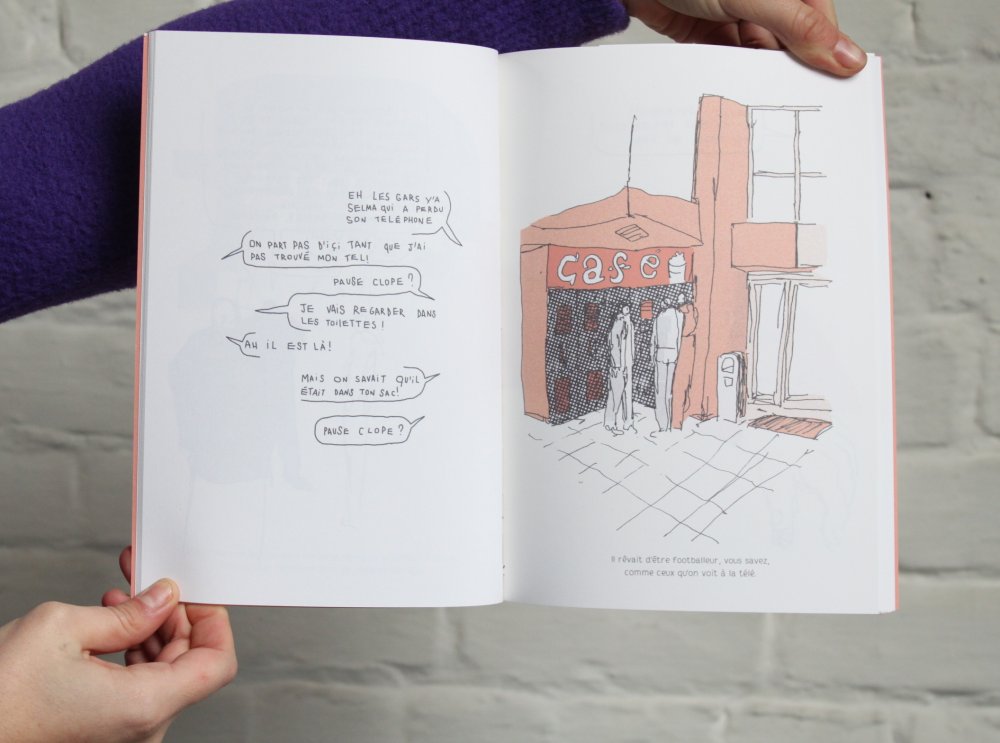 EH LES GARS Y'A
SELMA QUI A PERDU
SON TELÉPHONE
ON PART PAS D'IÇI TANT QUE J'AI
PAS TROUVÉ MON TEL!
PAUSE CLOPE?
JE VAIS REGARDER DANS
LES TOILETTES!
AH IL EST LÀ!
MAIS ON SAVAIT QU'IL
ÉTAIT DANS TON SAC!
PAUSE CLOPE?
café
Il rêvait d'être footballeur, vous savez,
comme ceux qu'on voit à la télé.